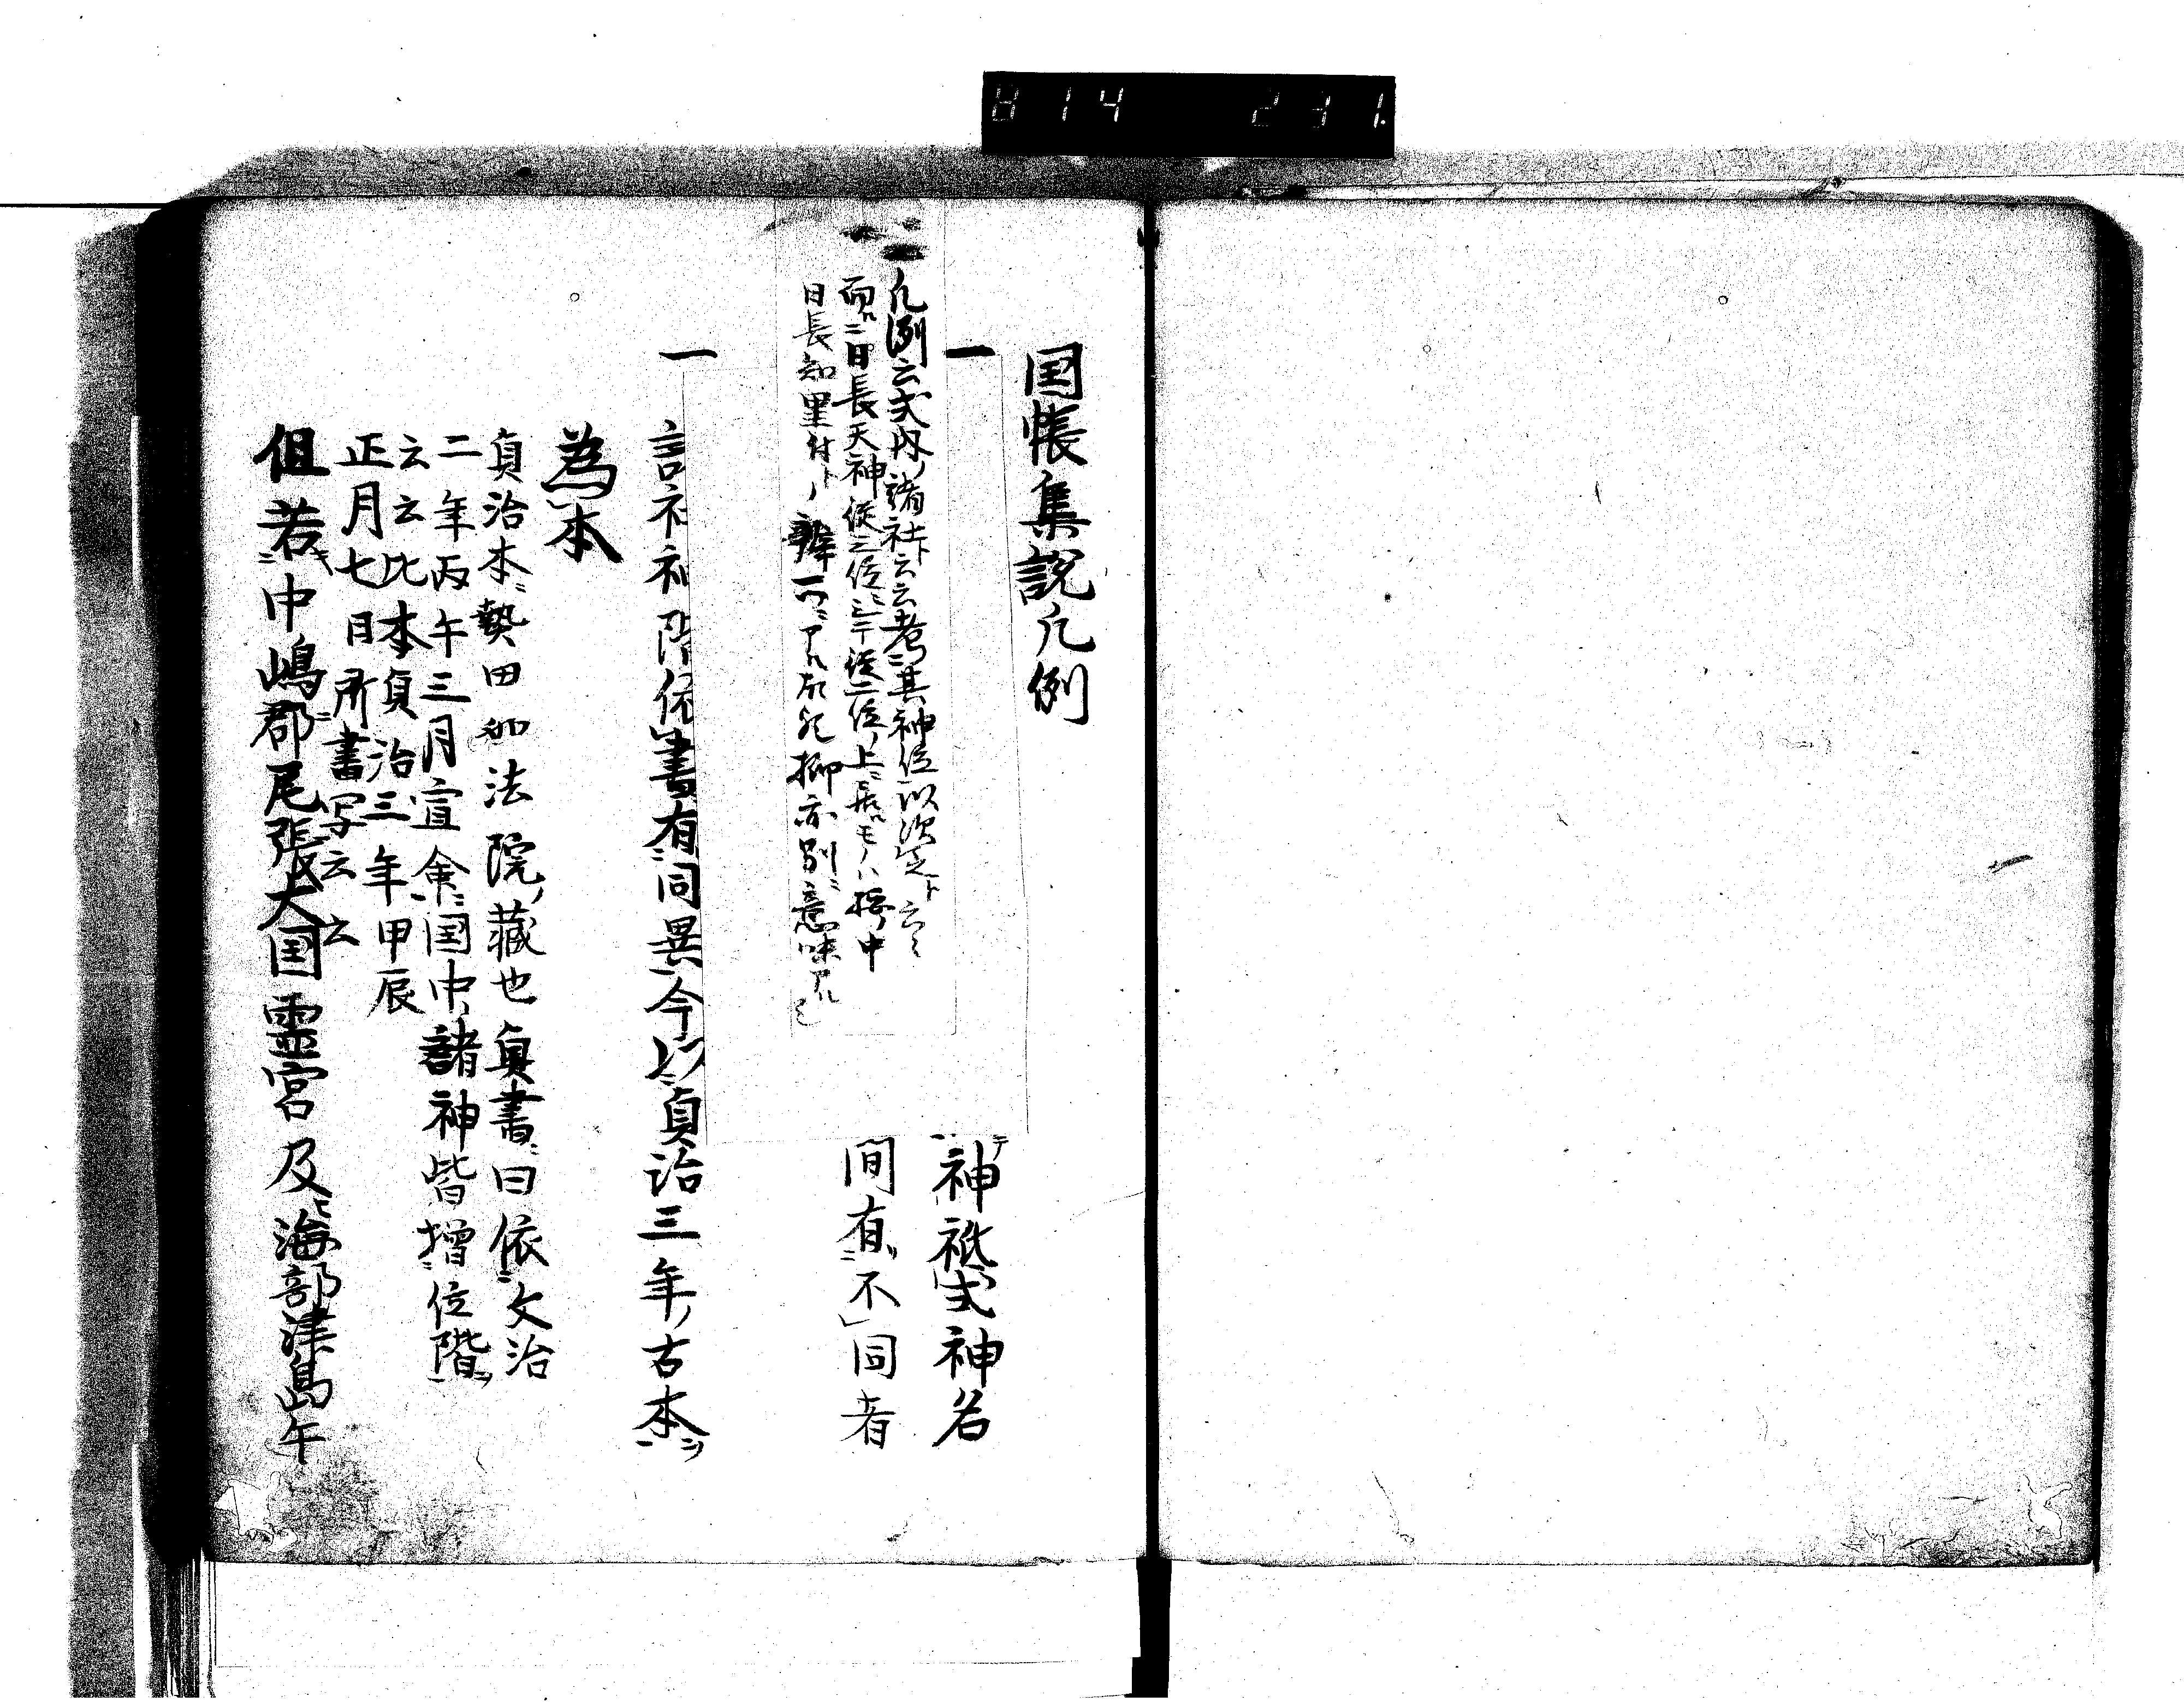 国帳集説凡例
一
神祇式神名
間有不同者
凡例云式内ノ諸社ト云云考其神位以次定ト云々
而二日長天神従三位ニテ従二位ノ上ニ居ルモノハ 中
日長知里付トノ 抑亦別ニ意味アル
一
諸神神階依書有同異今以貞治三年ノ古本
為本
貞治本ニ熱田如法院ノ藏也 奥書ニ曰依文治
二年丙午三月宣命国中ノ諸神皆増位階
云云此本貞治三年甲辰
正月七日所書写云云
但若中嶋郡尾張大国霊宮及海部津島午
8 14 231.